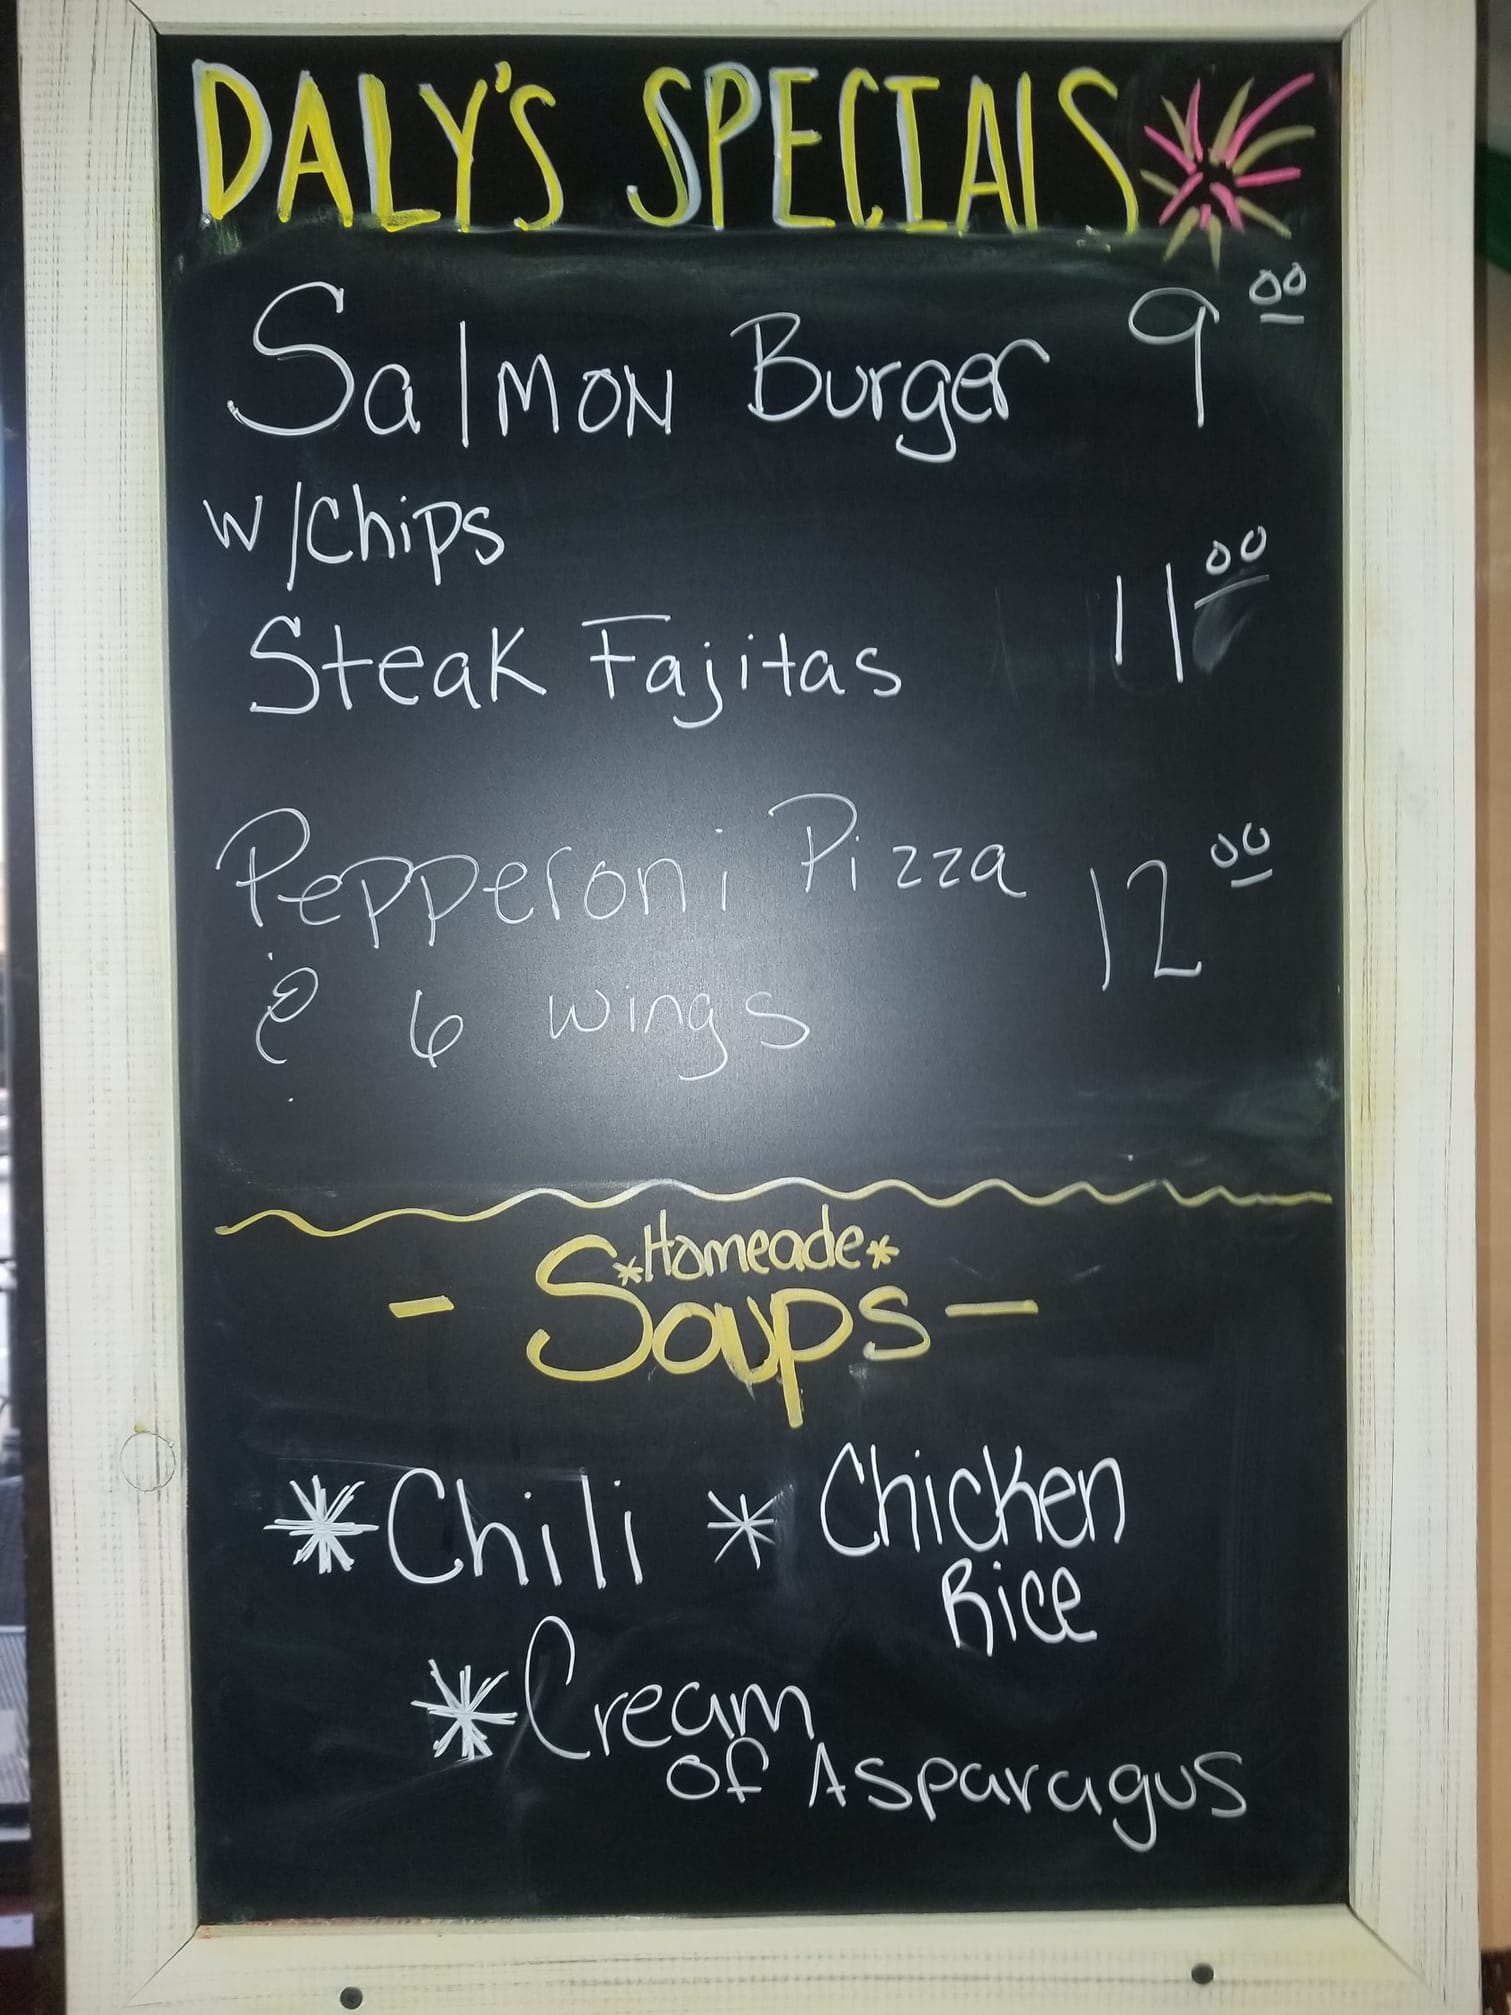 DALY'S SPECIALS
Salmon Burger 9 00
w/Chips
Steak Fajitas 11 00
Pepperoni Pizza 12 00
& 6 wings
*Homeade*
- Soups -
*Chili * Chicken
Rice
*Cream
of Asparagus